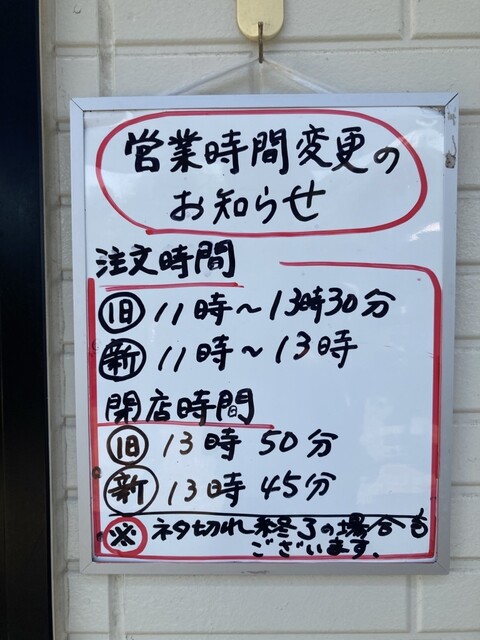 営業時間変更の
お知らせ
注文時間
旧 11時~13時30分
新 11時~13時
閉店時間
旧 13時50分
新 13時45分
※ ネタ切れ終了の場合も
ございます。